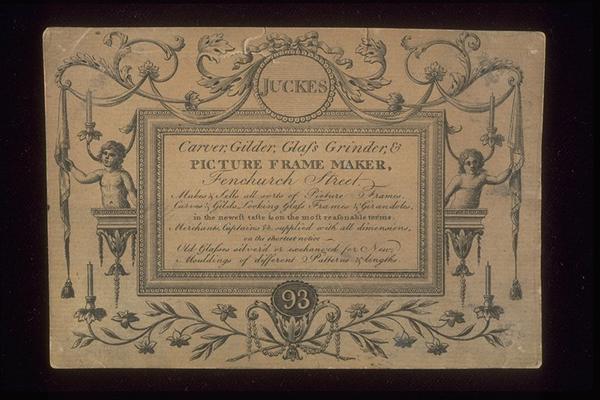 JUCKES
Carver, Gilder, Glaſs Grinder, &
PICTURE FRAME MAKER,
Fenchurch Street.
Makes & Sells all sorts of Picture Frames,
Carves & Gilds, Looking Glaſs Frames & Girandoles,
in the neweſt taſte & on the moſt reaſonable terms;
Merchants, Captains &c. supplied with all dimensions,
on the shortest notice
Old Glaſses silver'd or exchanged for New,
Mouldings of different Patterns & lengths
93